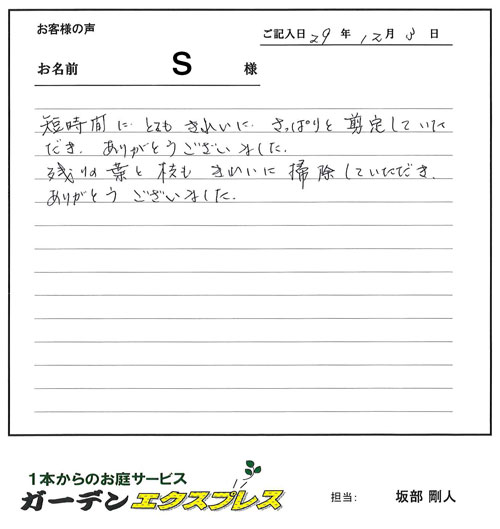 お客様の声
ご記入日 29 年 12 月 3 日
お名前 S 様
短時間に とても きれいに さっぱりと 剪定していた
だき、ありがとうございました。
残りの葉と枝も きれいに 掃除していただき、
ありがとう ございました。
1本からのお庭サービス
ガーデンエクスプレス
担当: 坂部 剛人